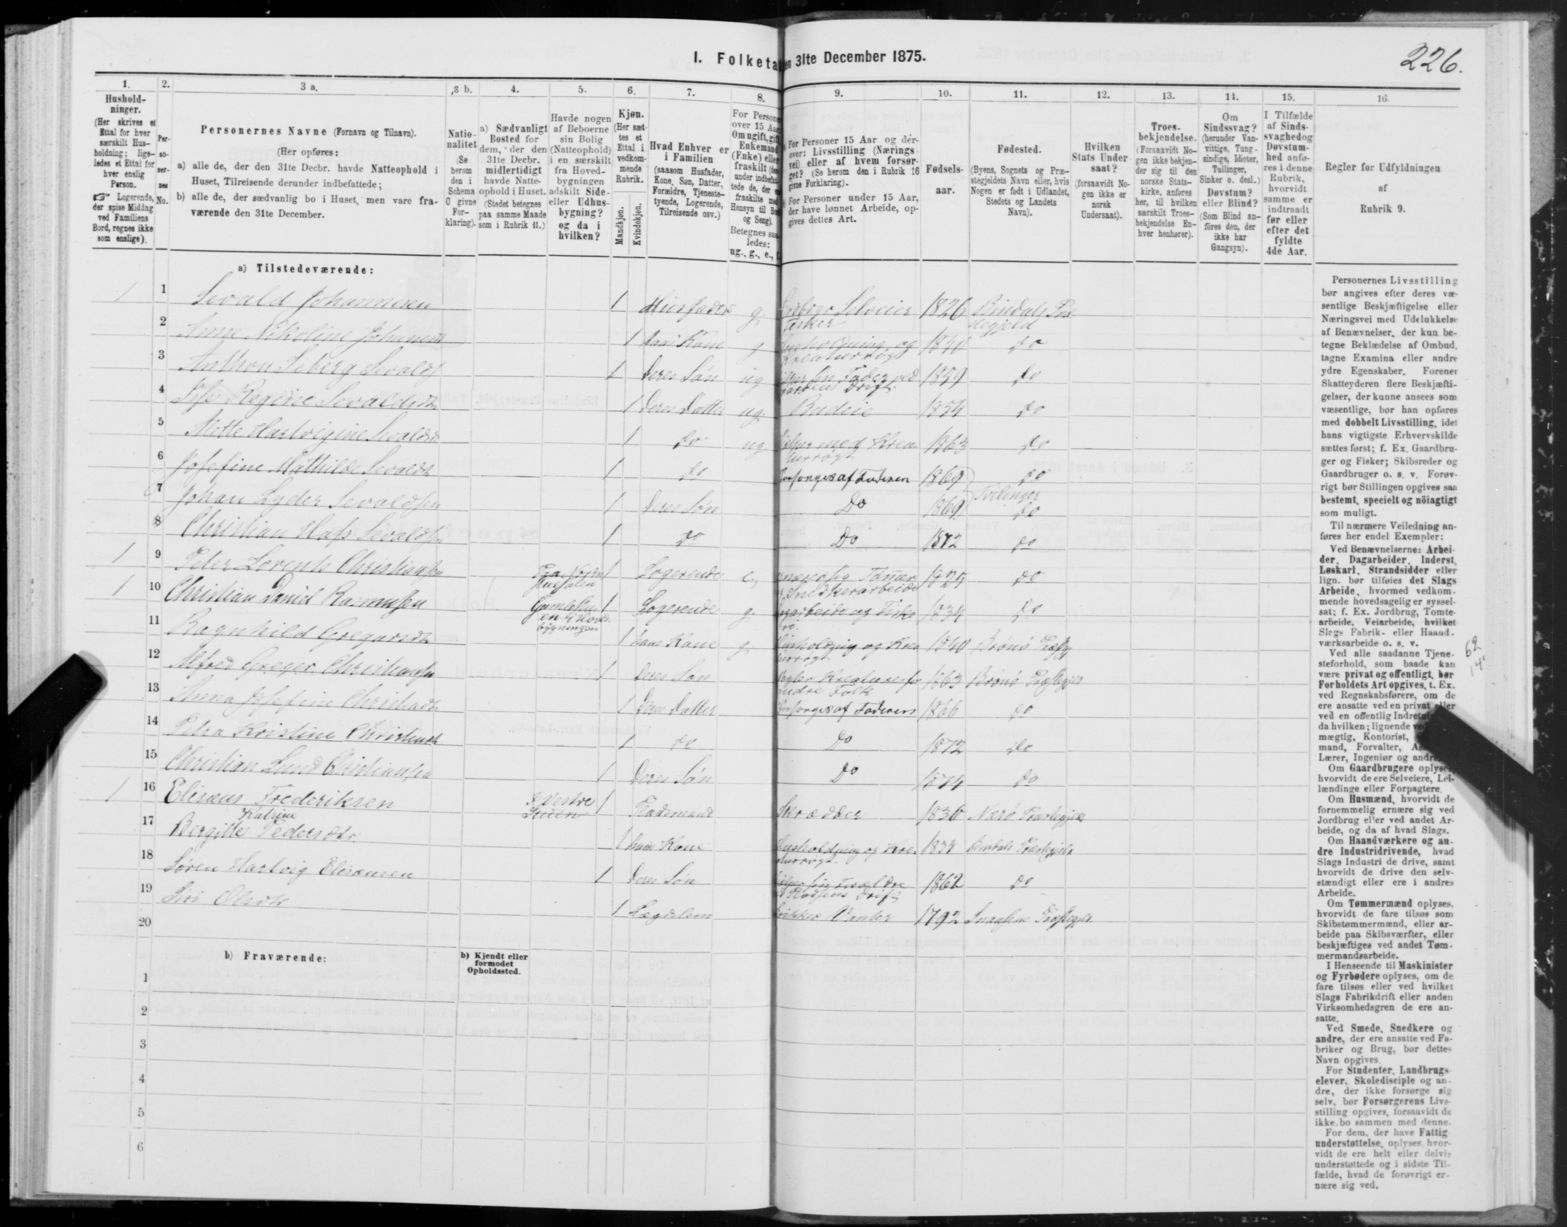 I. Folketa en 31te December 1875.
226.
1.
Hushold-
ninger.
(Her skrives et
Ettal for hver
særskilt Hus-
holdning; lige-
ledes et Ettal for
hver enslig
Person.
☞ Logerende,
der spise Middag
ved Familiens
Bord, regnes ikke
som enslige).
2.
Per-
so-
ner-
nes
No.
3 a.
Personernes Navne (Fornavn og Tilnavn).
(Her opføres:
a) alle de, der den 31te Decbr. havde Natteophold i
Huset, Tilreisende derunder indbefattede;
b) alle de, der sædvanlig bo i Huset, men vare fra-
værende den 31te December.
3 b.
Natio-
nalitet
(Se
herom
den i
Schema
C givne
For-
klaring).
4.
a) Sædvanligt
Bosted for
dem, der den
31te Decbr.
midlertidigt
havde Natte-
ophold i Huset.
(Stedet betegnes
paa samme Maade
som i Rubrik 11.)
5.
Havde nogen
af Beboerne
sin Bolig
(Natteophold)
i en særskilt
fra Hoved-
bygningen
adskilt Side-
eller Udhus-
bygning?
og da i
hvilken?
6.
Kjøn.
(Her sæt-
tes et
Ettal i
vedkom-
mende
Rubrik.
Mandkjøn.
Kvindekjøn.
7.
Hvad Enhver er
i Familien
(saasom Husfader,
Kone, Søn, Datter,
Forældre, Tjeneste-
tyende, Logerende,
Tilreisende osv.)
8.
For Persone
over 15 Aar
Om ugift, gift
Enkemand
(Enke) elle
fraskilt
Betegnes saa
ledes:
ug., g., e., f.
9.
For Personer 15 Aar og der-
over: Livsstilling (Nærings-
vei) eller af hvem forsør-
get? (Se herom den i Rubrik 16
givne Forklaring).
For Personer under 15 Aar,
der have lønnet Arbeide, op-
gives dettes Art.
10.
Fødsels-
aar.
11.
Fødested.
(Byens, Sognets og Præ-
stegjeldets Navn eller, hvis
Nogen er født i Udlandet,
Stedets og Landets
Navn).
12.
Hvilken
Stats Under-
saat?
(forsaavidt No-
gen ikke er
norsk
Undersaat).
13.
Troes-
bekjendelse.
(Forsaavidt No-
gen ikke bekjen-
der sig til den
norske Stats-
kirke, anføres
her, til hvilken
særskilt Troes-
bekjendelse En-
hver henhører).
14.
Om
Sindssvag?
(herunder Van-
vittige, Tung-
sindige, Idioter,
Tullinger,
Sinker o. desl.)
Døvstum?
eller Blind?
(Som Blind an-
føres den, der
ikke har
Gangsyn).
15.
I Tilfælde
af Sinds-
svaghed og
Døvstum-
hed anfø-
res i denne
Rubrik,
hvorvidt
samme er
indtraadt
før eller
efter det
fyldte
4de Aar.
16.
Regler for Udfyldningen
af
Rubrik 9.
a) Tilstedeværende:
1 1 Sevald Johannesen 1 Huusfader g. Selveier 1826 Bindals Præ
stegjeld
2 Anne Nikoline Johannesd 1 hans Kone g og 1840 do
3 Anthon Seberg Sevalds 1 Deres Søn ug sin Fader ved 1859 do
4 Regine Sevaldsdt 1 Deres Datter ug Budeie 1854 do
5 Mette Hartvigine Sevaldsd 1 do ug med Krea 1863 do
6 Josefine Mathilde Sevaldsd 1 do Forsørges af Faderen 1869 do
Tvilinger
7 Johan Lyder Sevaldsen 1 Deres Søn Do 1869 do
8 Christian Hass Sevaldsen 1 do Do 1872 do
1 9 Peter Lorents Christiansen 1 Logerende e. 1825 do
Snedkerarbeide
1 10 Christian Daniel Rasmussen 1 Logerende g. og 1834 do
11 Ragnhild Gregersdt 1 hans Kone g. Huusholdning og Krea 1840 Brønø Præstgj
12 Alfred Greger Christiansen 1 Deres Søn 1863 Brønø Præstegjel
andre Folk
13 Anna Josefine Christiansd 1 Deres Datter Forsørges af Faderen 1866 do
14 Petra Kristine Christiansd 1 do Do 1872 do
15 Christian Lund Christiansen 1 Deres Søn Do 1874 do
1 16 Eliseus Frederiksen 1 Skrædder 1836 Nærø Præstegjeld
Katrine
17 Bergitte Pedersdtr 1 hans Kone Huusholdning og Krea 1834 Præstegjeld
18 Søren Hartvig Eliseusen 1 Deres Søn 1862 do
19 Siri Olsdt 1 Lægdslem 1792 Snaasen Præstegjeld
20
b) Fraværende:
b) Kjendt eller
formodet
Opholdssted.
1
2
3
4
5
6
62
14
Personernes Livsstilling
bør angives efter deres væ-
sentlige Beskjæftigelse eller
Næringsvei med Udelukkelse
af Benævnelser, der kun be-
tegne Beklædelse af Ombud,
tagne Examina eller andre
ydre Egenskaber. Forener
Skatteyderen flere Beskjæfti-
gelser, der kunne ansees som
væsentlige, bør han opføres
med dobbelt Livsstilling, idet
hans vigtigste Erhvervskilde
sættes først; f. Ex. Gaardbru-
ger og Fisker; Skibsreder og
Gaardbruger o. s. v. Forøv-
rigt bør Stillingen opgives saa
bestemt, specielt og nøiagtigt
som muligt.
Til nærmere Veiledning an-
føres her endel Exempler:
Ved Benævnelserne: Arbei-
der, Dagarbeider, Inderst,
Løskarl, Strandsidder eller
lign. bør tilføies det Slags
Arbeide, hvormed vedkom-
mende hovedsagelig er syssel-
sat; f. Ex. Jordbrug, Tomte-
arbeide, Veiarbeide, hvilket
Slags Fabrik- eller Haand-
værksarbeide o. s. v.
Ved alle saadanne Tjene-
steforhold, som baade kan
være privat og offentligt, bør
Forholdets Art opgives, t. Ex.
ved Regnskabsførere, om de
ere ansatte ved en privat eller
ved en offentlig Indretn
da hvilken; lignende ve
mægtig, Kontorist,
mand, Forvalter, As
Lærer, Ingeniør og andre
Om Gaardbrugere oplyses
hvorvidt de ere Selveiere, Lei-
lændinge eller Forpagtere.
Om Husmænd, hvorvidt de
fornemmelig ernære sig ved
Jordbrug eller ved andet Ar-
beide, og da af hvad Slags.
Om Haandværkere og an-
dre Industridrivende, hvad
Slags Industri de drive, samt
hvorvidt de drive den selv-
stændigt eller ere i andres
Arbeide.
Om Tømmermænd oplyses,
hvorvidt de fare tilsøs som
Skibstømmermænd, eller ar-
beide paa Skibsværfter, eller
beskjæftiges ved andet Tøm-
mermandsarbeide.
I Henseende til Maskinister
og Fyrbødere oplyses, om de
fare tilsøs eller ved hvilket
Slags Fabrikdrift eller anden
Virksomhedsgren de ere an-
satte.
Ved Smede, Snedkere og
andre, der ere ansatte ved Fa-
briker og Brug, bør dettes
Navn opgives.
For Studenter, Landbrugs-
elever, Skoledisciple og an-
dre, der ikke forsørge sig
selv, bør Forsørgerens Livs-
stilling opgives, forsaavidt de
ikke bo sammen med denne.
For dem, der have Fattig-
understøttelse, oplyses, hvor-
vidt de ere helt eller delvis
understøttede og i sidste Til-
fælde, hvad de forøvrigt er-
nære sig ved.